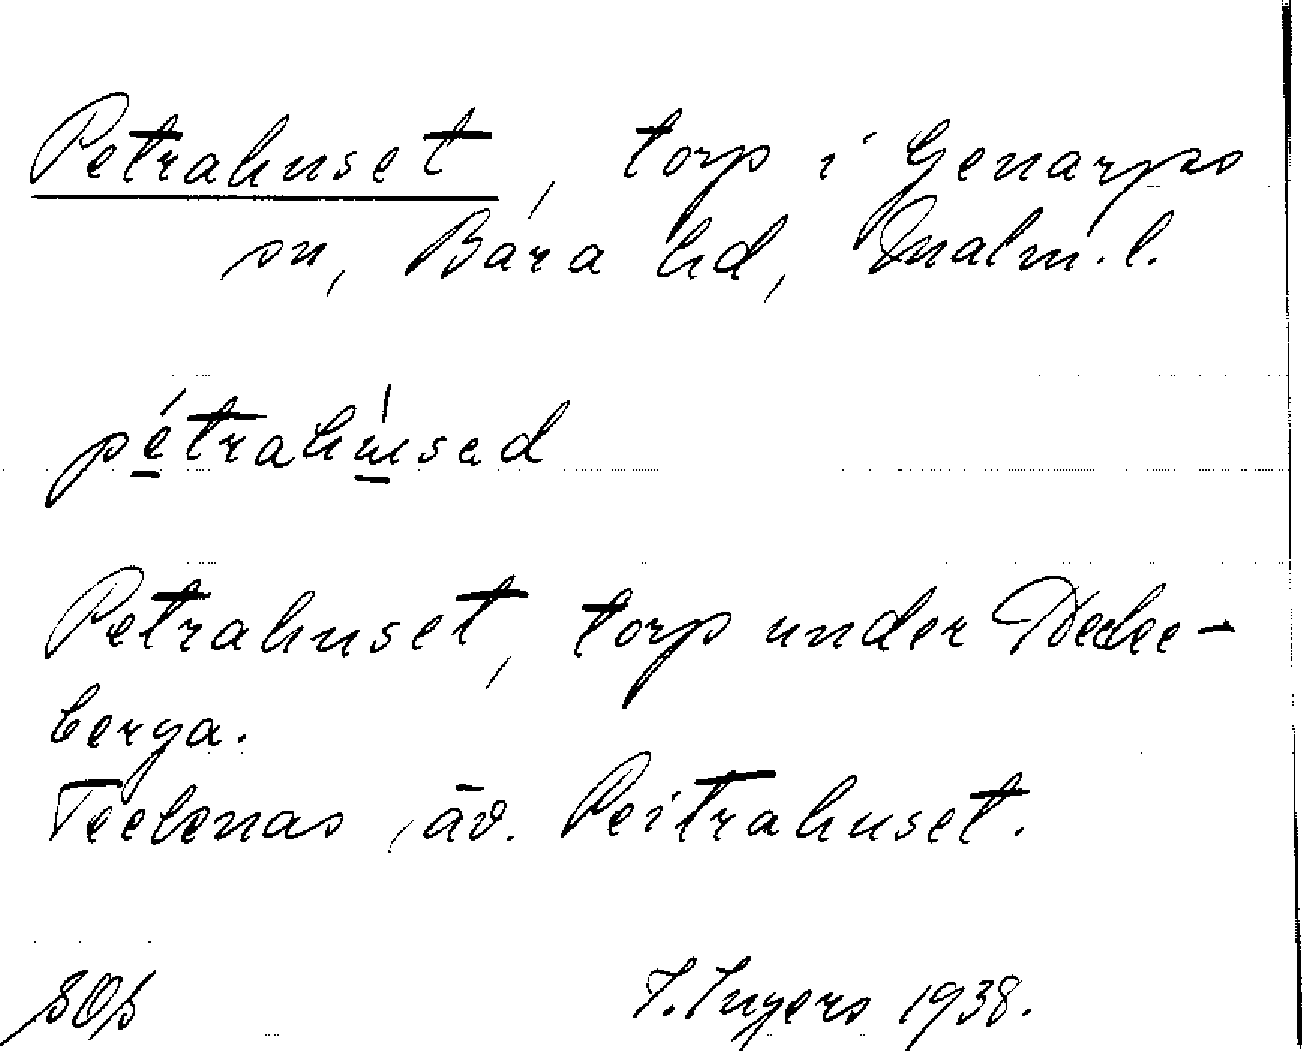 Petrahuset, torp i Genarps
sn, Bara hd, Malm. l.
pétrahúsed
Petrahuset, torp under Hecke-
berga.
Tecknas äv. Peitrahuset.
I. Ingers 1938.